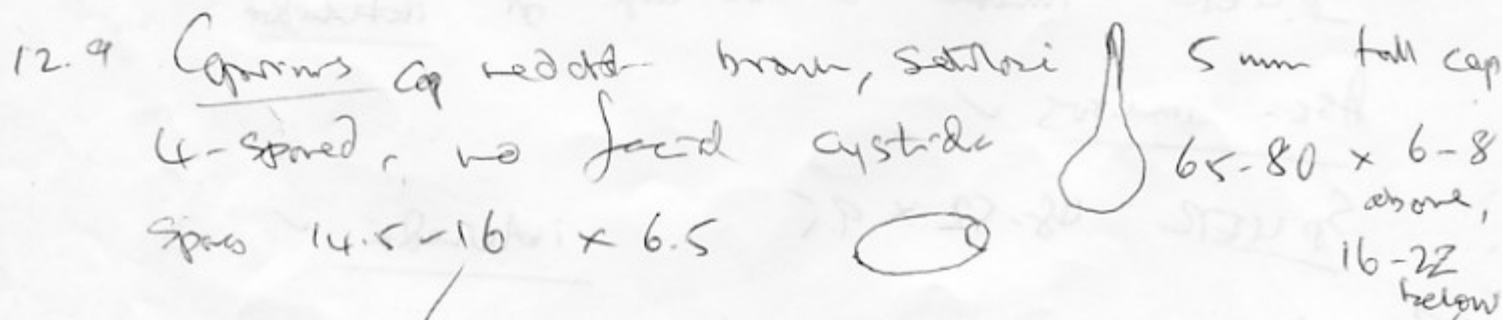 12.9 Coprinus cap reddish brown, setulose 5 mm tall cap
4-spored, no facial cystidia 65-80 x 6-8
above,
spores 14.5-16 x 6.5
16-22
below